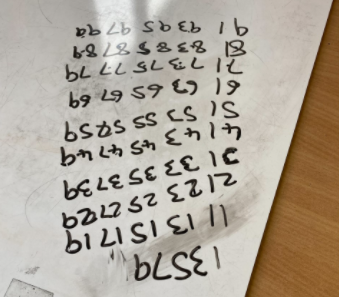 13579
11 13 15 17 19
21 23 25 27 29
31 33 35 37 39
41 43 45 47 49
51 53 55 57 59
61 63 65 67 69
71 73 75 77 79
81 83 85 87 89
91 93 95 97 99